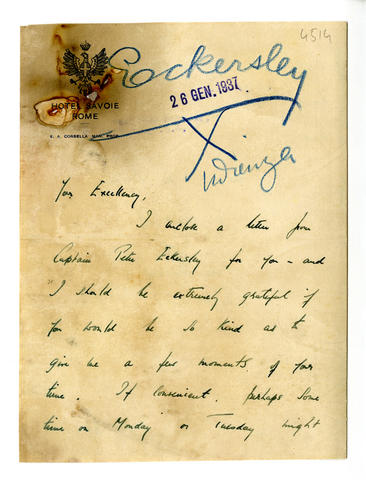 4514
Rockersley
26 GEN. 1937
HOTEL SAVOIE
ROME
Udienza
Your Excellency,
I enclose a letter from
Captain Peter Eckersley for you - and
I should be extremely grateful if
you would be so kind as to
give me a few moments of your
time. If convenient, perhaps some
time on Monday or Tuesday might